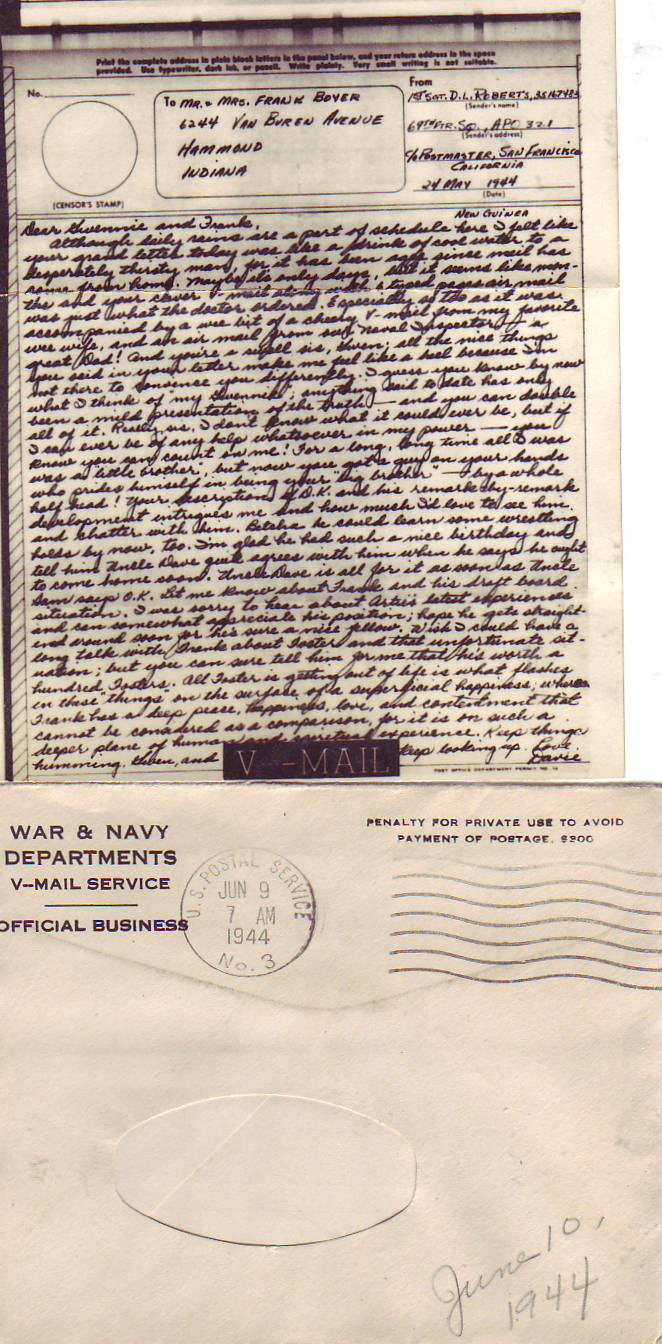 Print the complete address in plain block letters in the panel below, and your return address in the space
provided. Use typewriter, dark ink, or pencil. Write plainly. Very small writing is not suitable.
No.
(CENSOR'S STAMP)
To MR. & MRS. FRANK BOYER
6244 VAN BUREN AVENUE
HAMMOND
INDIANA
From
1ST SGT. D.L. ROBERTS,
(Sender's name)
69TH FTR. SQ., APO 321
(Sender's address)
C/O POSTMASTER, SAN FRANCISCO
CALIFORNIA
24 MAY 1944
(Date)
NEW GUINEA
Dear Gwennie and Frank,
Although daily rains are a part of schedule here I felt like
your grand letter today was like a drink of cool water to a
desperately thirsty man, for it has been ages since mail has
come from home. Maybe its only days, but it seems like mon-
ths and your clever V-mail along with 6 typed pages air mail
was just what the doctor ordered. Especially so too as it was
accompanied by a wee bit of a cheery V-mail from my favorite
wee wife, and an air mail from our Naval Inspector of a
great Dad! And you're a swell sis, Gwen; all the nice things
you said in your letter make me feel like a heel because I'm
not there to convence you differently. I guess you know by now
what I think of my Gwennie; anything said to date has only
been a mild presentation of the truth — and you can double
all of it. Really, sis, I don't know what it could ever be, but if
I can ever be of any help whatsoever in my power — you
know you can count on me! For a long, long time all I was
was a "little brother", but now you got a guy on your hands
who prides himself in being your "big brother" — by a whole
half head! Your description of D.K. and his remark-by-remark
development intrigues me and how much I'd love to see him
and chatter with him. Betcha he could learn some wrestling
holds by now, too. I'm glad he had such a nice birthday and
tell him Uncle Dave quite agrees with him when he says he ought
to come home soon. Uncle Dave is all for it as soon as Uncle
Sam says O.K. Let me know about Frank and his draft board
situation. I was sorry to hear about Artie's latest experiences
and can somewhat appreciate his position; hope he gets straight-
end around soon for he's sure a nice fellow. Wish I could have a
long talk with Frank about Foster and that unfortunate sit-
uation; but you can sure tell him for me that he's worth a
hundred Fosters. All Foster is getting out of life is what flashes
in these "things" on the surface of a superficial happiness, whereas
Frank has a deep peace, happiness, love, and contentment that
cannot be considered as a comparison, for it is on such a
deeper plane of human and spiritual experience. Keep things
humming, Gwen, and keep looking up. Love,
Davie
V--MAIL
POST OFFICE DEPARTMENT PERMIT NO.
WAR & NAVY
DEPARTMENTS
V--MAIL SERVICE
OFFICIAL BUSINESS
PENALTY FOR PRIVATE USE TO AVOID
PAYMENT OF POSTAGE, $300
U.S. POSTAL SERVICE
JUN 9
7 AM
1944
No. 3
June 10,
1944